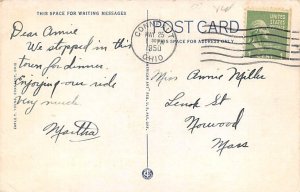 THIS SPACE FOR WRITING MESSAGES
POST CARD
THIS SPACE FOR ADDRESS ONLY
Dear Annie
We stopped in this
town for dinner.
Enjoying our ride
very much
Martha
MAY 25
PM
195
OHIO
UNITED STATES
Miss Annie Miller
Lenox St
Norwood
Mass